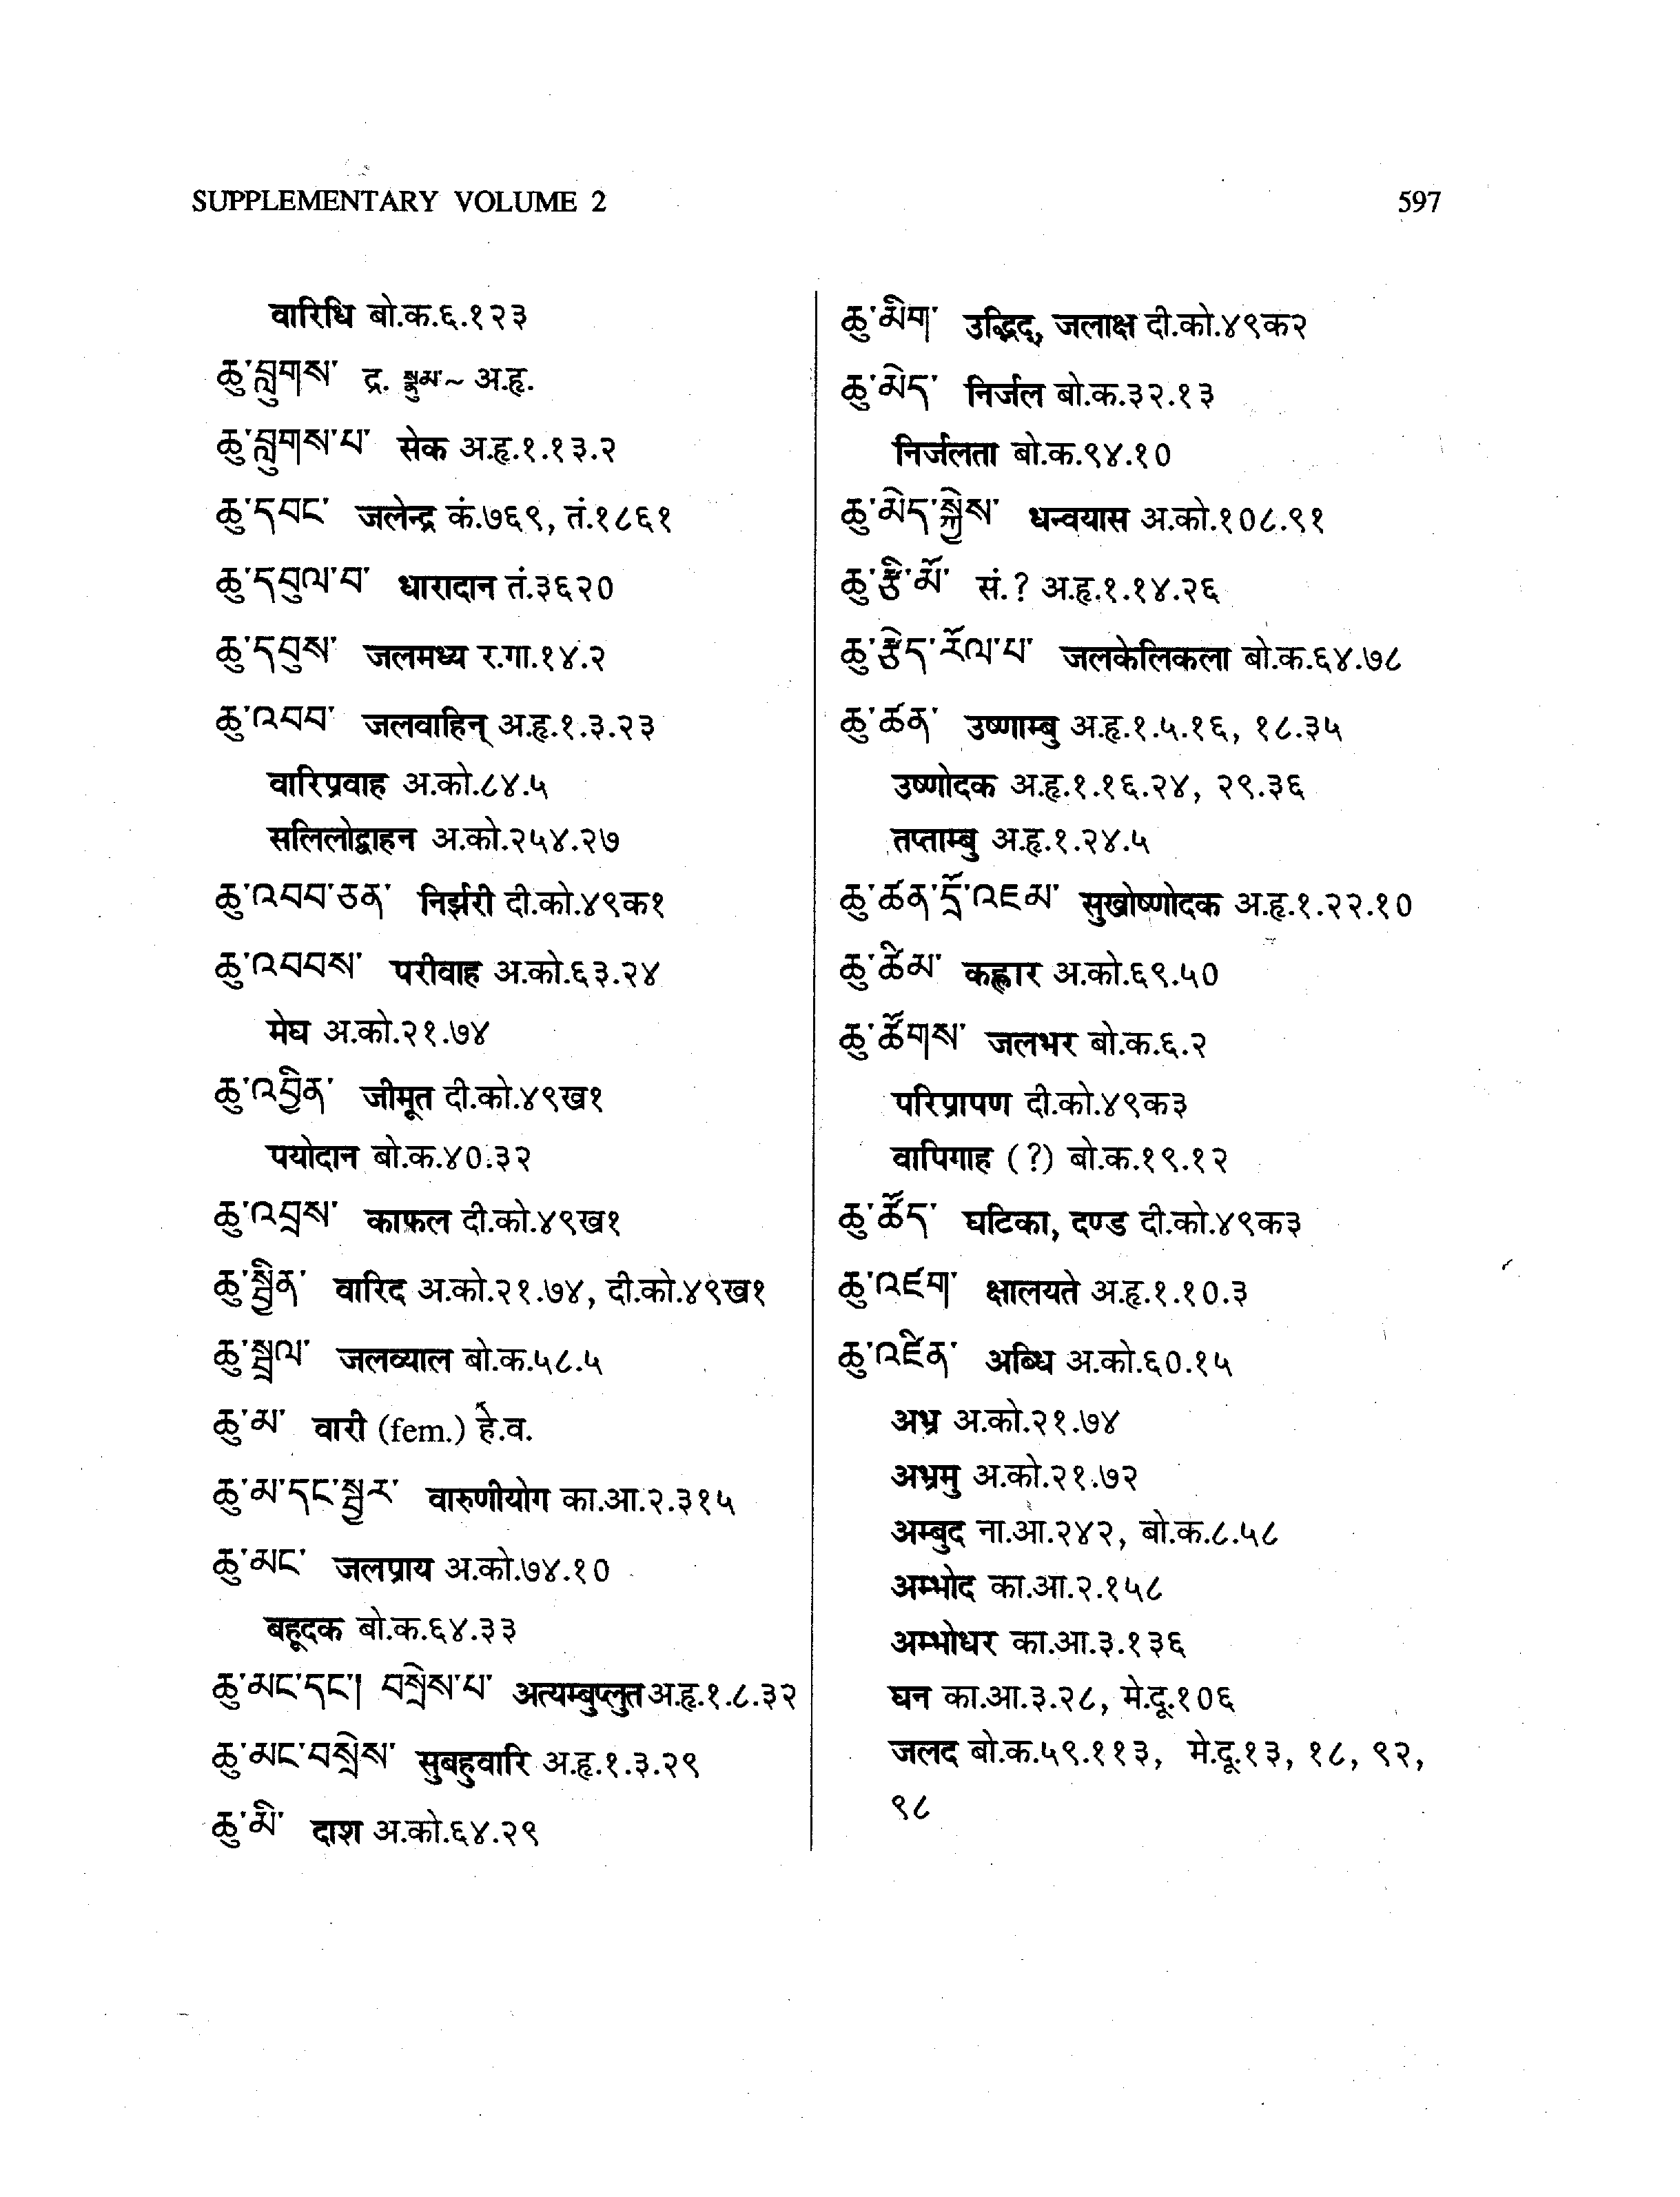 SUPPLEMENTARY VOLUME 2 597
वारिधि बो.क.६.१२३
ཆུ་བླུགས་ द्र. སྣུམ་~ अ.हृ.
ཆུ་བླུགས་པ་ सेक अ.हृ.१.१३.२
ཆུ་དབང་ जलेन्द्र कं.७६९, तं.१८६१
ཆུ་དབུལ་བ་ धारादान तं.३६२०
ཆུ་དབུས་ जलमध्य र.गा.१४.२
ཆུ་འབབ་ जलवाहिन् अ.हृ.१.३.२३
वारिप्रवाह अ.को.८४.५
सलिलोद्वाहन अ.को.२५४.२७
ཆུ་འབབ་ཅན་ निर्झरी दी.को.४९क१
ཆུ་འབབས་ परीवाह अ.को.६३.२४
मेघ अ.को.२१.७४
ཆུ་འབྱིན་ जीमूत दी.को.४९ख१
पयोदान बो.क.४०.३२
ཆུ་འབྲས་ काफल दी.को.४९ख१
ཆུ་སྦྱིན་ वारिद अ.को.२१.७४, दी.को.४९ख१
ཆུ་སྦྲུལ་ जलव्याल बो.क.५८.५
ཆུ་མ་ वारी (fem.) हे.व.
ཆུ་མ་དང་སྦྱར་ वारुणीयोग का.आ.२.३१५
ཆུ་མང་ जलप्राय अ.को.७४.१०
बहूदक बो.क.६४.३३
ཆུ་མང་དང་། བསྲེས་པ་ अत्यम्बुप्लुत अ.हृ.१.८.३२
ཆུ་མང་བསྲེས་ सुबहुवारि अ.हृ.१.३.२९
ཆུ་མི་ दाश अ.को.६४.२९
ཆུ་མིག་ उद्भिद्, जलाक्ष दी.को.४९क२
ཆུ་མེད་ निर्जल बो.क.३२.१३
निर्जलता बो.क.९४.१०
ཆུ་མེད་སྐྱེས་ धन्वयास अ.को.१०८.९१
ཆུ་རྩི་མོ་ सं.? अ.हृ.१.१४.२६
ཆུ་རྩེད་རོལ་པ་ जलकेलिकला बो.क.६४.७८
ཆུ་ཚན་ उष्णाम्बु अ.हृ.१.५.१६, १८.३५
उष्णोदक अ.हृ.१.१६.२४, २९.३६
तप्ताम्बु अ.हृ.१.२४.५
ཆུ་ཚན་དྲོ་འཇམ་ सुखोष्णोदक अ.हृ.१.२२.१०
ཆུ་ཚིམ་ कह्लार अ.को.६९.५०
ཆུ་ཚོགས་ जलभर बो.क.६.२
परिप्रापण दी.को.४९क३
वापिगाह (?) बो.क.१९.१२
ཆུ་ཚོད་ घटिका, दण्ड दी.को.४९क३
ཆུ་འཛག་ क्षालयते अ.हृ.१.१०.३
ཆུ་འཛིན་ अब्धि अ.को.६०.१५
अभ्र अ.को.२१.७४
अभ्रमु अ.को.२१.७२
अम्बुद ना.आ.२४२, बो.क.८.५८
अम्भोद का.आ.२.१५८
अम्भोधर का.आ.३.१३६
घन का.आ.३.२८, मे.दू.१०६
जलद बो.क.५९.११३, मे.दू.१३, १८, ९२,
९८